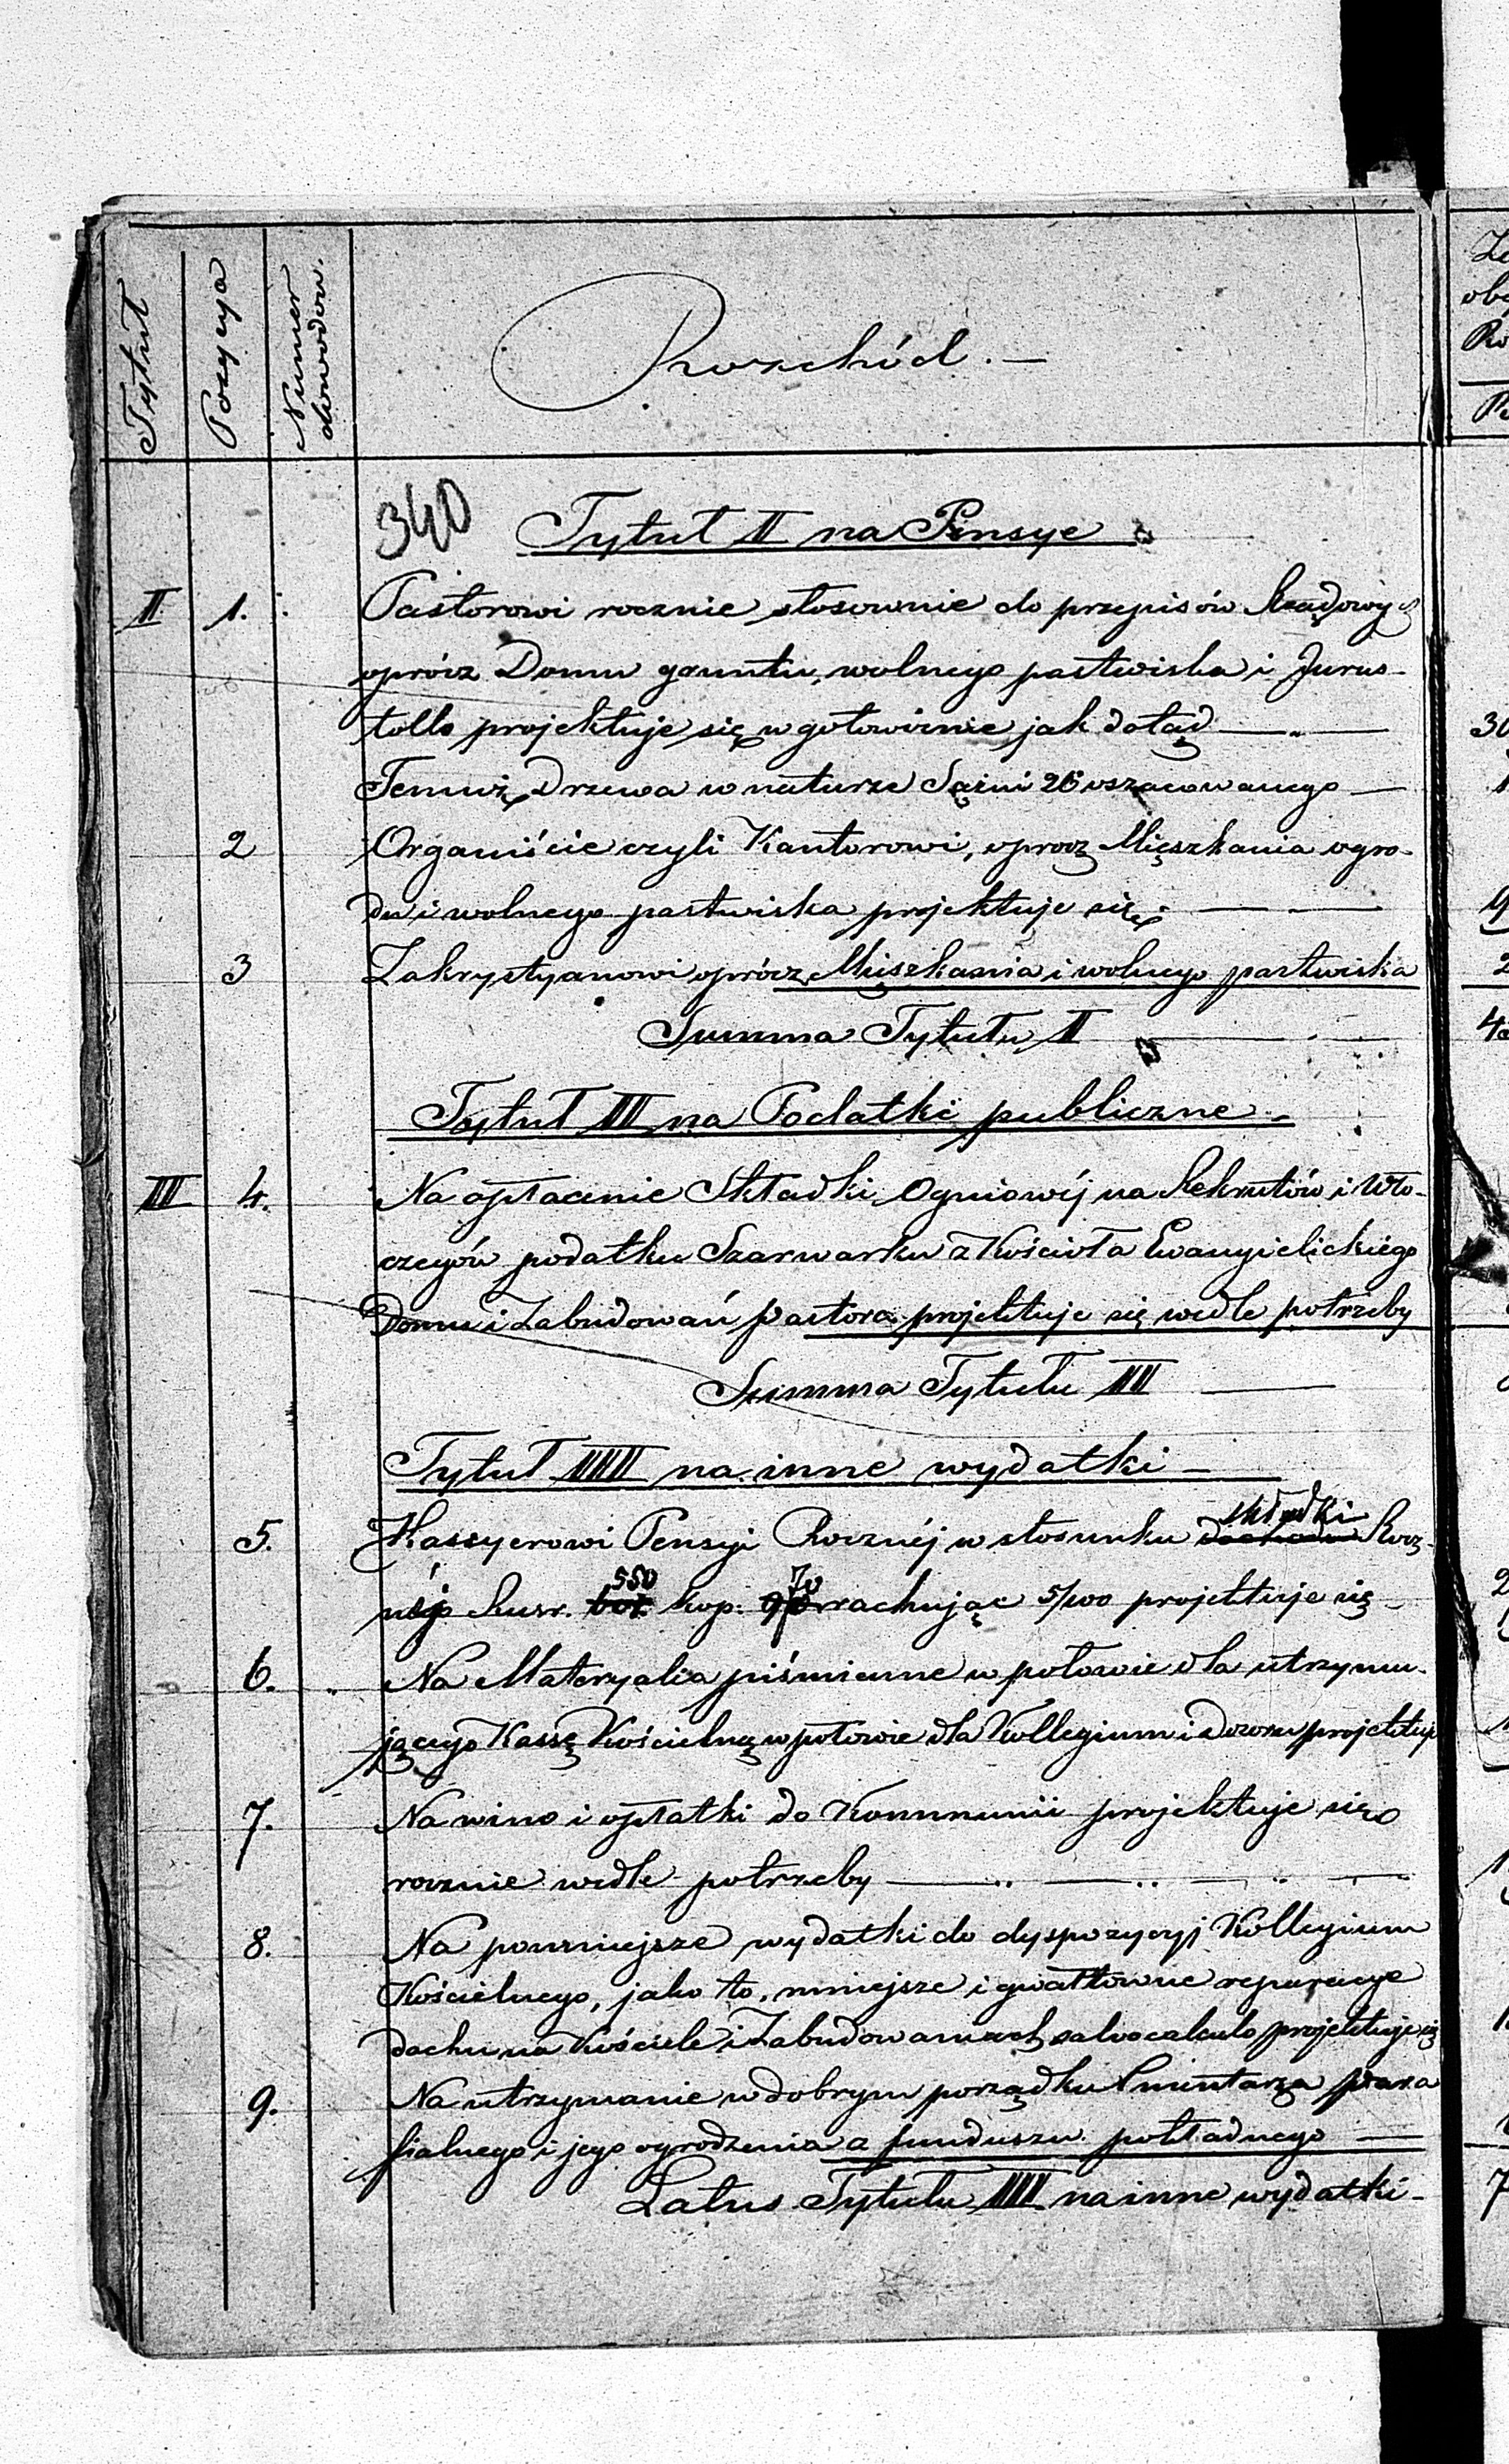 Tytuł
Pozycya
Numer
dowodów.
Rozchód.—
340
Tytuł II na Pensye
II 1. Pastorowi rocznie stosownie do przepisów Rządowych
oprócz Domu gruntu, wolnego pastwiska i Jurus-
tollo projektuje się w gotowiznie jak dotąd
Temuż Drzewa w naturze Sążni 26 oszacowanego —
2 Organiście czyli Kantorowi, oprocz Mięszkania ogro-
du i wolnego pastwiska projektuje się
3 Zakrystyanowi oprócz Mięszkania i wolnego pastwiska
Summa Tytułu II
Tytuł III na Podatki publiczne
III 4. Na opłacenie Składki Ogniowéj na Rekrutów i Włó-
czegów podatku Szarwarku z Kościoła Ewangielickiego
Domu i Zabudowań pastora projektuje się wedle potrzeby
Summa Tytułu III
Tytuł IIII na inne wydatki —
składki
5. Kassyerowi Pensyi Rocznéj w stosunku dochodu Rocz-
550 70
néj Rusr. kop. rachując 5/100 projektuje się
6. Na Materyalia piśmienne w połowie dla utrzymu-
jącego Kassę Kościelną w połowie dla Kollegium i Dozoru projektuje
7. Na wino i opłatki do Kommunii projektuje się
rocznie wedle potrzeby
8. Na pomniejsze wydatki do dyspozycyj Kollegium
Kościelnego, jako to, mniejsze i gwałtowne reparacye
dachu na Kościele i Zabudowaniach salvo calculo projektuje się
9. Na utrzymanie w dobrym porządku Smentarza para
fialnego i jego ogrodzenia z funduszu pokładnego —
Latus Tytułu IIII na inne wydatki -